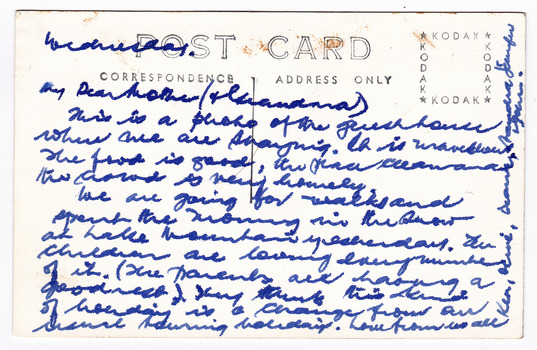 Wednesday.
POST CARD
CORRESPONDENCE ADDRESS ONLY
KODAK
KODAK
KODAK
KODAK
My Dear Mother (& Grandma)
This is a photo of the guest house
where we are staying. It is marvellous
The food is good, the place clean and
the crowd is very homely.
We are going for walks and
spent the morning in the snow
at Lake Mountain yesterday. The
children are loving every minute
of it. (The parents are having a
good rest). They think this kind
of holiday is a change from our
usual touring holidays. Love from us all
Ken,